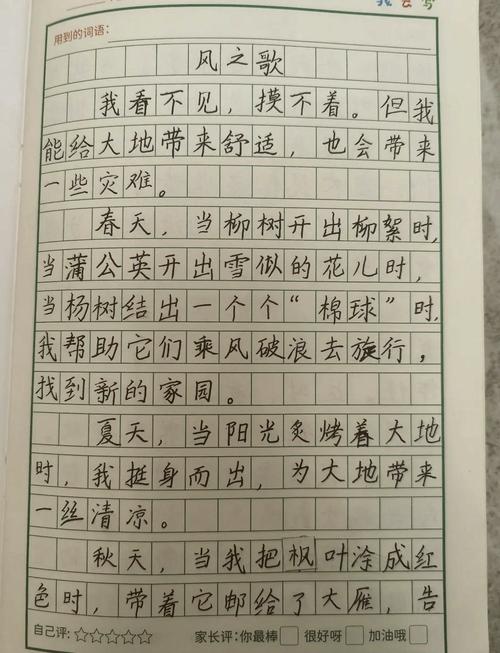 我会写
用到的词语：
风之歌
我看不见，摸不着。但我
能给大地带来舒适，也会带来
一些灾难。
春天，当柳树开出柳絮时，
当蒲公英开出雪似的花儿时，
当杨树结出一个个“棉球”时，
我帮助它们乘风破浪去旅行，
找到新的家园。
夏天，当阳光炙烤着大地
时，我挺身而出，为大地带来
一丝清凉。
秋天，当我把枫叶涂成红
色时，带着它邮给了大雁，告
自己评：☆☆☆☆☆ 家长评：你最棒□ 很好呀□ 加油哦□